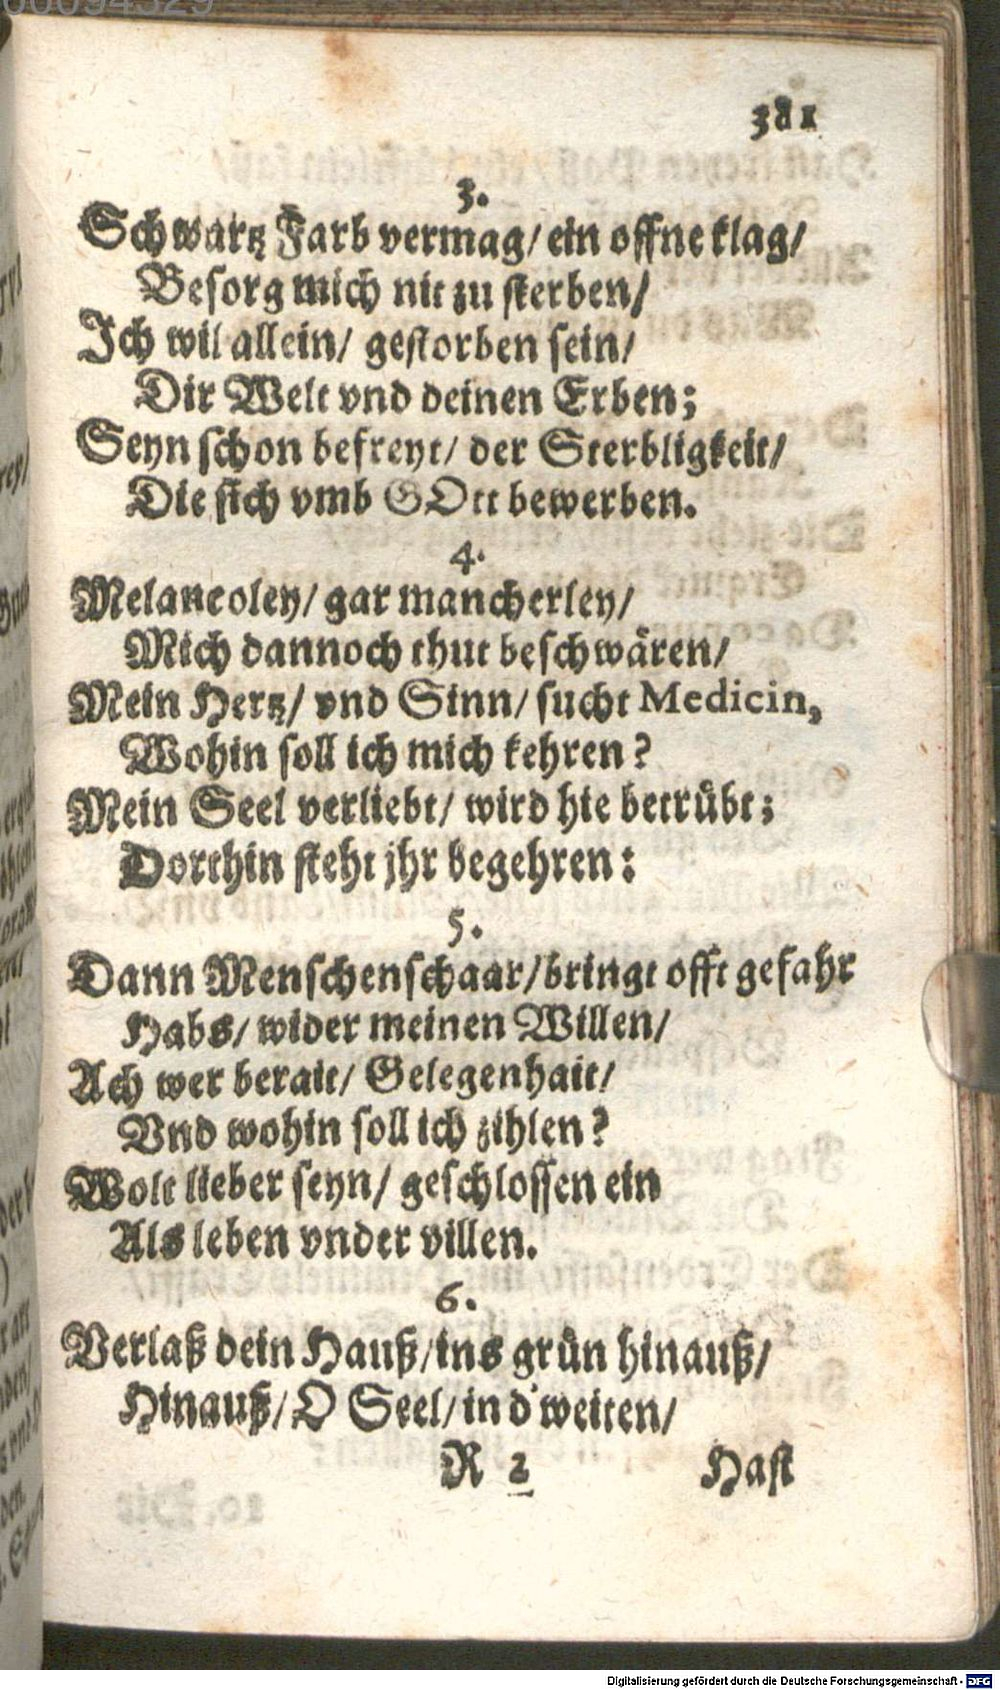 381
3.
Schwartz Farb vermag/ ein offne klag/
Besorg mich nit zu sterben/
Ich wil allein/ gestorben sein/
Dir Welt vnd deinen Erben;
Seyn schon befreyt/ der Sterbligkeit/
Die sich vmb GOtt bewerben.
4.
Melancoley/ gar mancherley/
Mich dannoch thut beschwären/
Mein Hertz/ vnd Sinn/ sucht Medicin,
Wohin soll ich mich kehren?
Mein Seel verliebt/ wird hie betrübt;
Dorthin steht jhr begehren:
5.
Dann Menschenschaar/ bringt offt gefahr
Habs/ wider meinen Willen/
Ach wer berait/ Gelegenhait/
Vnd wohin soll ich zihlen?
Wolt lieber seyn/ geschlossen ein
Als leben vnder villen.
6.
Verlaß dein Hauß/ ins grün hinauß/
Hinauß/ O Seel/ in d'weiten/
R 2 Hast
Digitalisierung gefördert durch die Deutsche Forschungsgemeinschaft - DFG